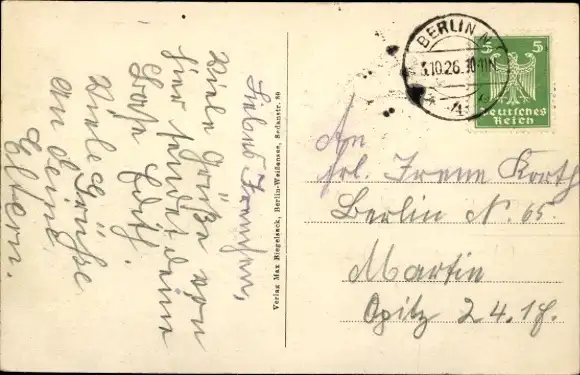 Liebes Irenchen,
Viele Grüße von
hier sendet deine
Base Edit.
Viele Grüße
an deine
Eltern.
Verlag Max Riegelsack, Berlin-Weißensee, Sedanstr. 80
BERLIN N
5.10.26. 10-11N
5 5
Deutsches
Reich
An
Frl. Irene Korth
Berlin N. 65.
Martin
Opitz 24.